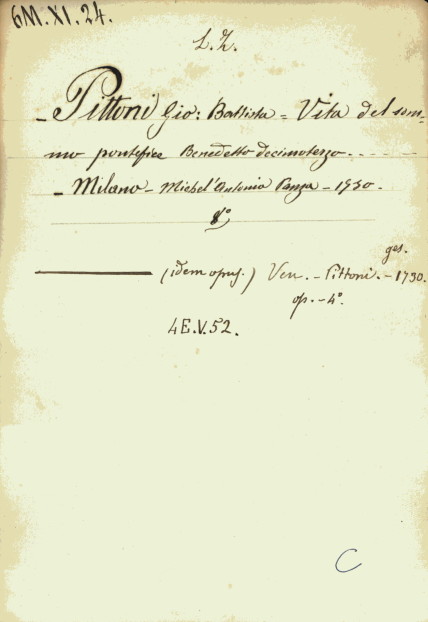 6M.XI.24.
L.Z.
- Pittoni Gio: Battista = Vita del som-
mo pontefice Benedetto decimoterzo. - - - -
- Milano - Michel'Antonio Panza - 1730.
8°
ges.
(idem opus.) Ven. - Pittoni. - 1730.
op. - 4°.
4E.V.52.
C